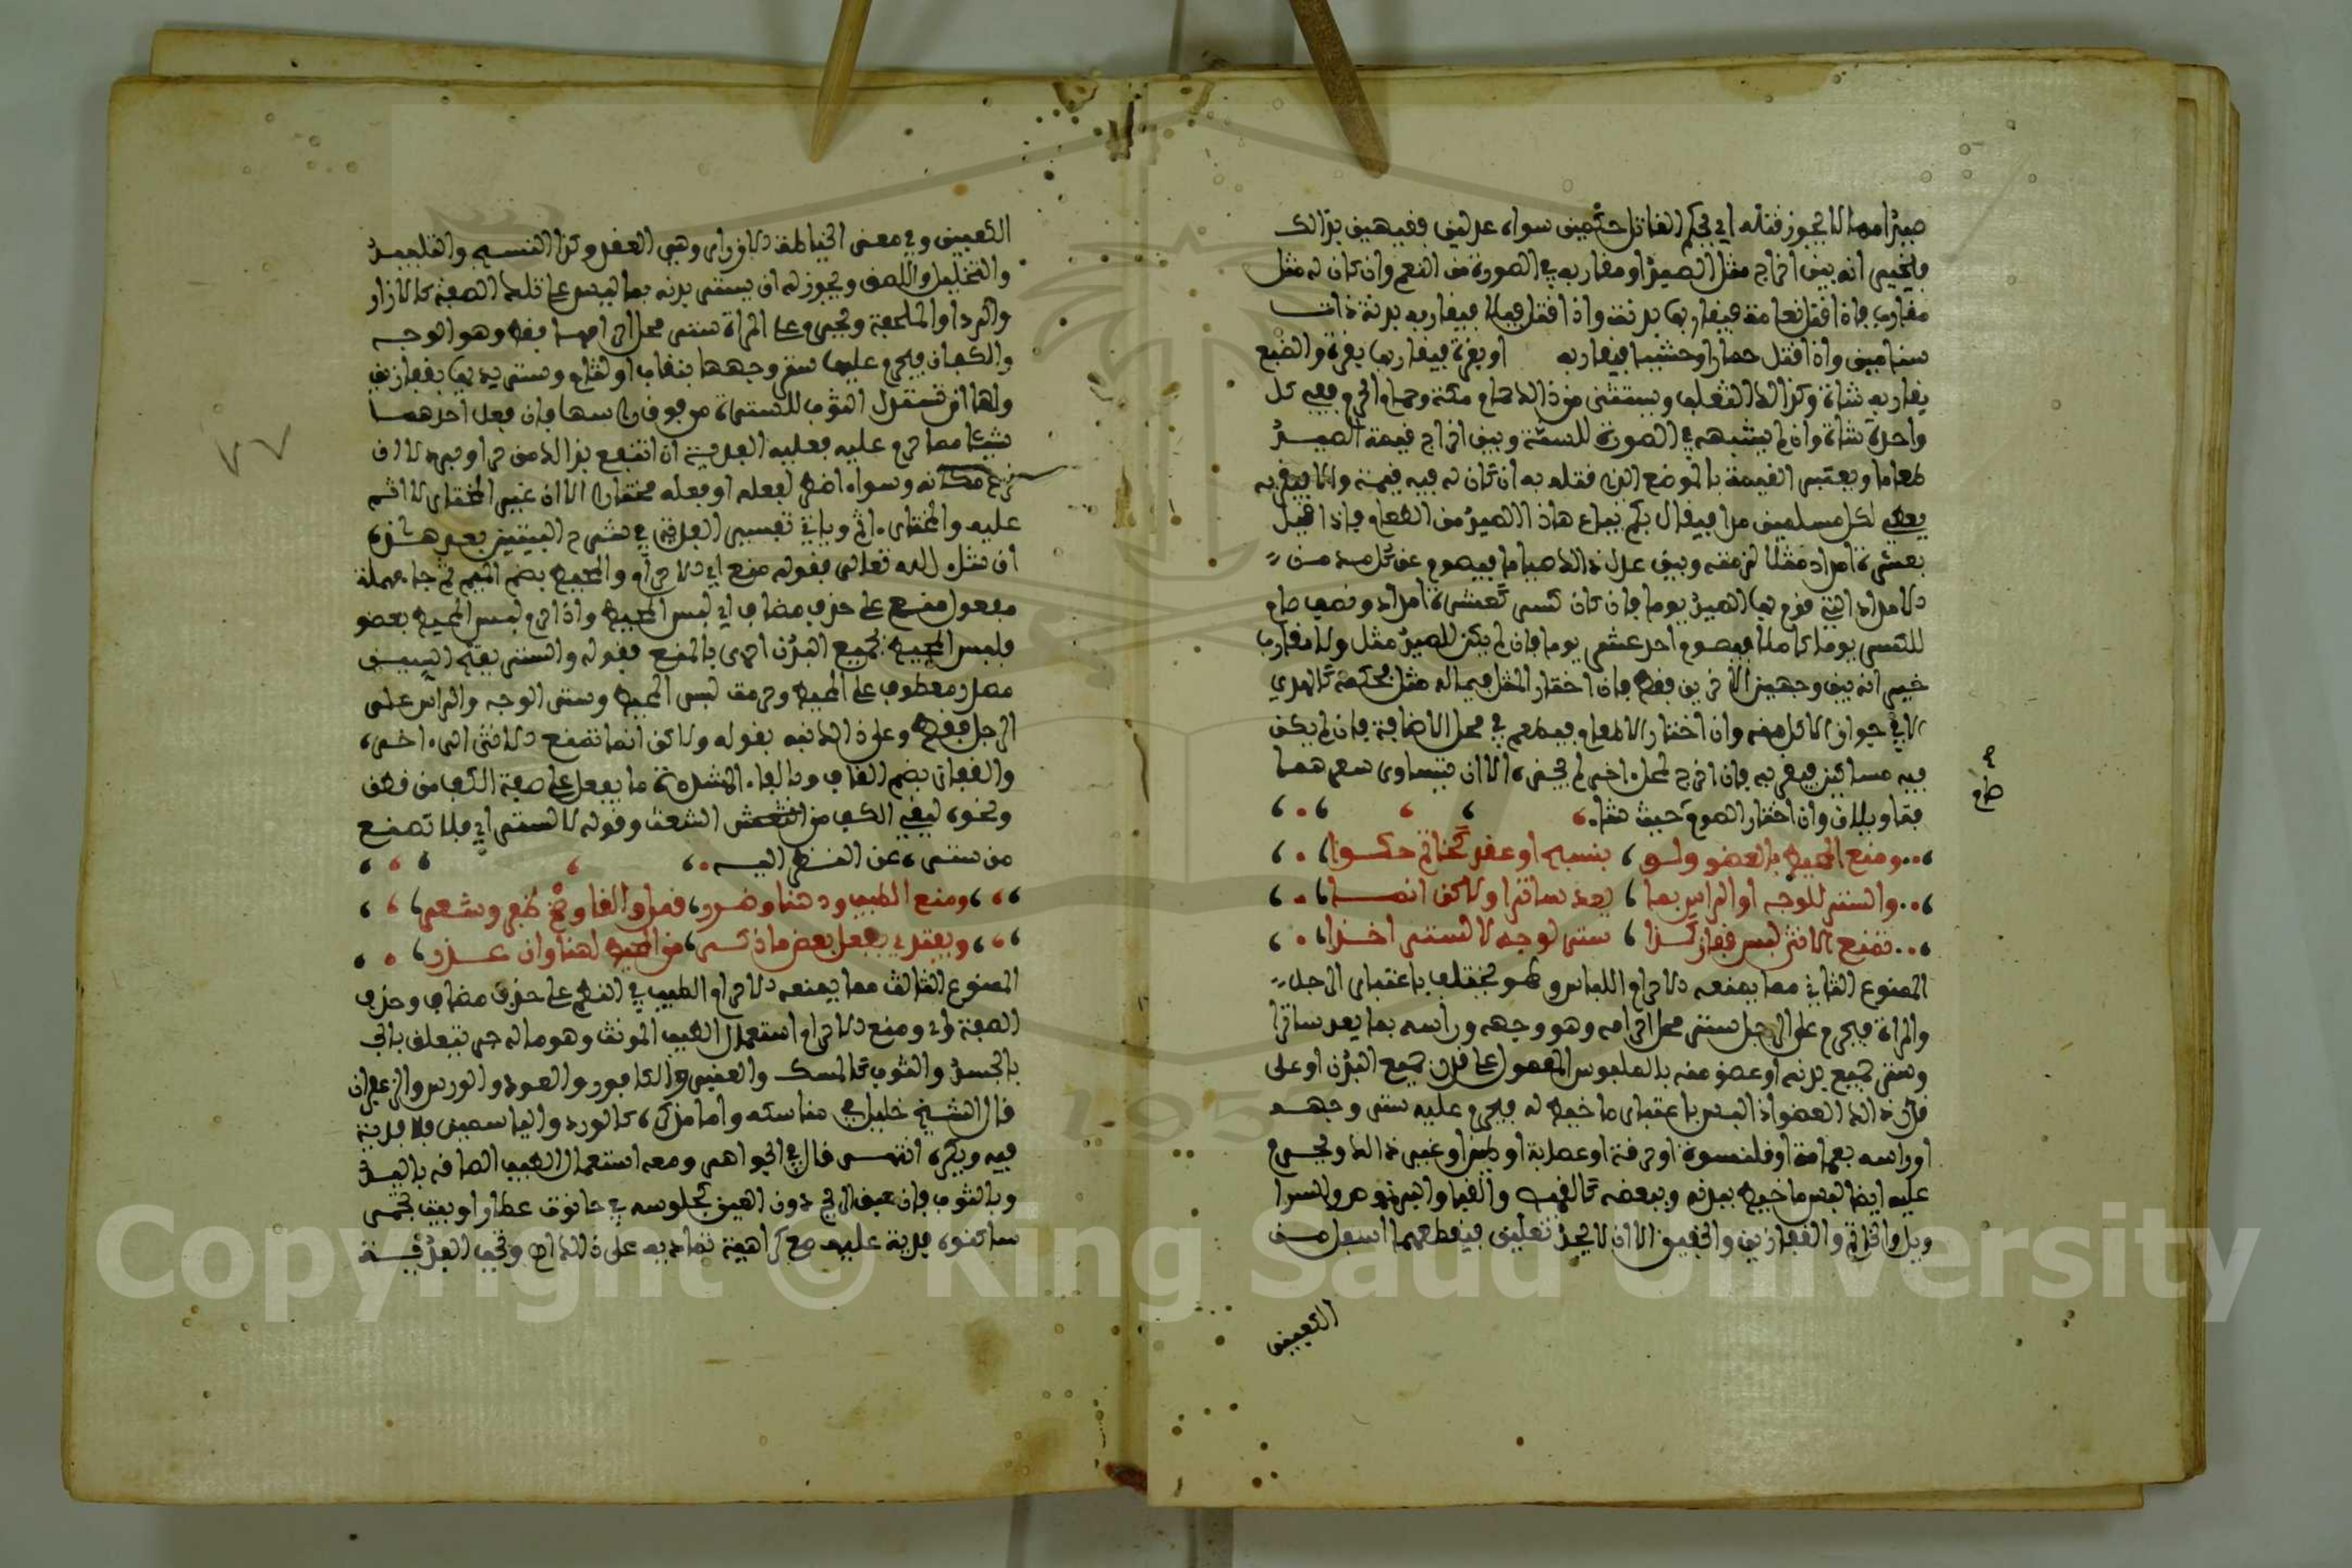 صيدا مما لا يجوز قتله اي يحكم القاتل حكمين سواه عدلين فقيهين بذالك
فيخير انه بين اخراج مثل الصيد او مقاربه في الصورة من النعم وان كان له مثل
مقارب فاذا قتل نعامة فيقاربها بدنة واذا قتل فيلا فيقاربه بدنة ذات
سنامين واذا قتل حمارا وحشيا فيقاربه او بقرة فيقاربها بقرة والضبع
يقاربه شاة وكذالك الثعلب ويستثنى من ذالك حمام مكة وحمام الحرم ففي كل
واحدة شاة وان لم يشبهه في الصورة للسنة وبين اخراج قيمة الصيد
طعاما ويعتبر القيمة بالموضع الذي قتله به ان كان له فيه قيمة والا فبقربه
يعطي لكل مسلمين مدا فيقال بكم يباع هاذا الصيد من الطعام فاذا قيل
بعشرة امداد مثلا لزمته وبين عدل ذالك صياما فيصوم عن كل مد من
الامداد التي قوم بها الصيد يوما فان كان كسر كعشرة امداد ونصف صام
للكسر يوما كاملا فيصوم احد عشر يوما فان لم يكن للصيد مثل ولا مقارب
خير انه بين وجهين الاخرين فقط فان اختار المثل فيما له مثل فحكمه كالهدي
الا في جواز الاكل منه وان اختار الاطعام فيطعم في محل الاصابة فان لم يكن
فيه مساكين فبقربه فان اخرج لمحل اخر لم يجز الا ان يتساوى سعرهما
فتاويلان وان اختار الصوم صام حيث شاء
ومنع المحيط بالعضو ولو بنسج او عقد كخاتم حكوا
والستر للوجه او الراس بما يعد ساترا ولاكن انما
تمنع الانثى لبس قفاز كذا ستر لوجه لا لستر اخذا
الممنوع الثاني مما يمنعه الاحرام اللباس وهو يختلف باعتبار الرجل
والمراة فيحرم على الرجل ستر محل احرامه وهو وجهه وراسه بما يعد ساترا
وستر جميع بدنه او عضو منه بالملبوس المعمول على قدر جميع البدن او على
قدر ذالك العضو اذا لبس باعتبار ما خيط له فيحرم عليه ستر وجهه
او راسه بعمامة او قلنسوة او خرقة او عصابة او طين او غير ذالك ويحرم
عليه ايضا لبس ما خيط ببدنه وببعضه كالقميص والقبا والبرنوس والسرا
ويل والخاتم والقفازين والخفين الا ان لا يجد نعلين فيقطعهما اسفل من
الكعبين
الكعبين وفي معنى الخياطة الازرار وهي العقد وكذا النسيج والتلبيد
والتخليل واللصق ويجوز له ان يستر بدنه بما ليس على تلك الصفة كالازار
والردا والملحفة ويحرم على المراة ستر محل احرامها فقط وهو الوجه
والكفان فيحرم عليها ستر وجهها بنقاب او لثام وستر يديها بقفازين
ولها ان تسدل الثوب للستر من فوق راسها فان فعل احدهما
شيئا مما حرم عليه فعليه الفدية ان انتفع بذالك من حر او برد لا ان
نزع مكانه وسواء اضطر لفعله او فعله مختارا الا ان غير المختار لا اثم
عليه والمختار اثم وياتي تفسير الفدية في شرح البيتين بعد هذه
ان شاء الله تعالى فقوله منع اي الاحرام والمحيط بضم الميم ثم حا مهملة
مفعول منع على حذف مضاف اي لبس المحيط واذا حرم لبس المحيط بعضو
فلبس المحيط بجميع البدن احرى بالمنع فقوله والستر بفتح السين
مصدر معطوف على المحيط وحرمة لبس المحيط وستر الوجه والراس على
الرجل فقط وعلى ذالك نبه بقوله ولاكن انما تمنع الانثى الى اخره
والقفاز بضم القاف وبالفاء المشددة ما يفعل على صفة الكف من قطن
ونحوه ليقي الكف من الشعث وقوله لا لستر اي فلا تمنع
من ستره عن النظر اليه
ومنع الطيب ودهنا وضرر قمل والقا وسخ ظفر وشعر
ويفتدي بفعل بعض ما ذكر من المحيط لهنا وان عذر
الممنوع الثالث مما يمنعه الاحرام الطيب في النظم على حذف مضاف وحذف
الصفة اي ومنع الاحرام استعمال الطيب المونث وهو ما له جرم يتعلق باثر
بالجسد والثوب كالمسك والعنبر والكافور والعود والورس والزعفران
قال الشيخ خليل في مناسكه واما مذكره كالورد والياسمين فلا فدية
فيه ويكره انتهى قال في الجواهر ومعه استعمال الطيب الصاقه باليد
وبالثوب فان عبق الريح دون العين بجلوسه في حانوت عطار او بيت تجمر
ساكنوه فلا فدية عليه مع كراهية تماديه على ذالك وتجب الفدية